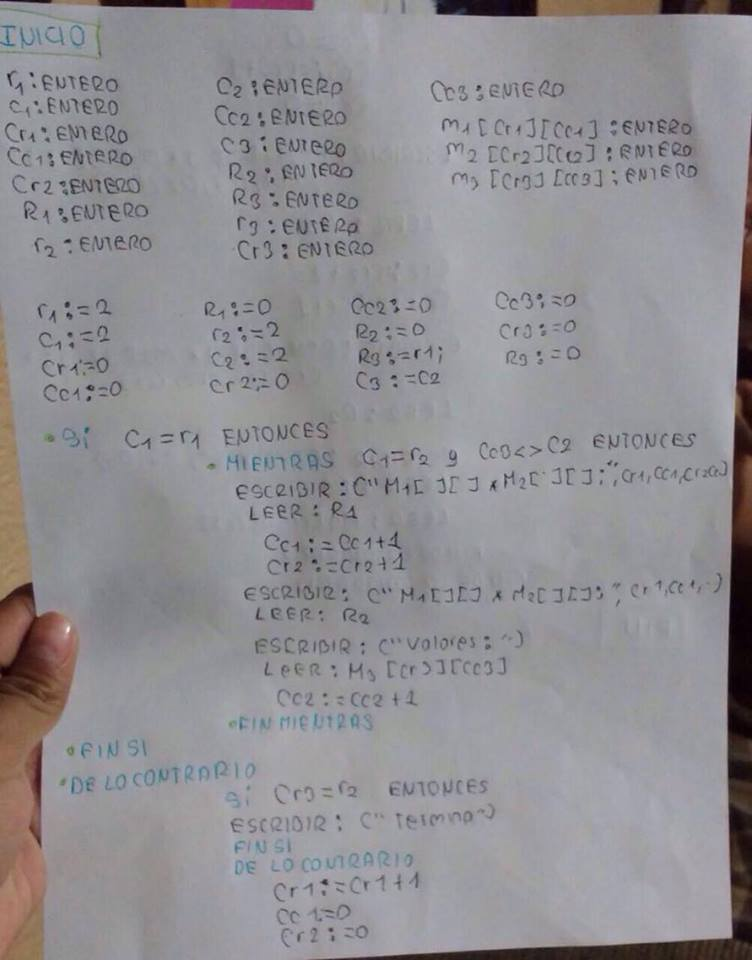 INICIO
r1:ENTERO
C1:ENTERO
Cr1:ENTERO
Cc1:ENTERO
Cr2:ENTERO
R1:ENTERO
r2:ENTERO
C2:ENTERO
Cc2:ENTERO
C3:ENTERO
R2:ENTERO
R3:ENTERO
r3:ENTERO
Cr3:ENTERO
Cc3:ENTERO
M1[Cr1][Cc1]:ENTERO
M2[Cr2][Cc2]:ENTERO
M3[Cr3][Cc3]:ENTERO
r1:=2
C1:=2
Cr1:=0
Cc1:=0
R1:=0
r2:=2
C2:=2
Cr2:=0
Cc2:=0
R2:=0
R3:=r1;
C3:=C2
Cc3:=0
Cr3:=0
R3:=0
• Si C1=r1 ENTONCES
• MIENTRAS C1=r2 y Cc3<>C2 ENTONCES
ESCRIBIR:C"M1[ ][ ] * M2[ ][ ]:",Cr1,Cc1,Cr2
LEER: R1
Cc1:=Cc1+1
Cr2:=Cr2+1
ESCRIBIR: C"M1[ ][ ] * M2[ ][ ]:", Cr1,Cc1,~)
LEER: R2
ESCRIBIR: C"Valores:~)
LEER: M3 [Cr3][Cc3]
Cc2:=Cc2+1
• FIN MIENTRAS
• FIN SI
• DE LO CONTRARIO
Si Cr3=r2 ENTONCES
ESCRIBIR: C"Termina~)
FIN SI
DE LO CONTRARIO
Cr1:=Cr1+1
Cc1:=0
Cr2:=0